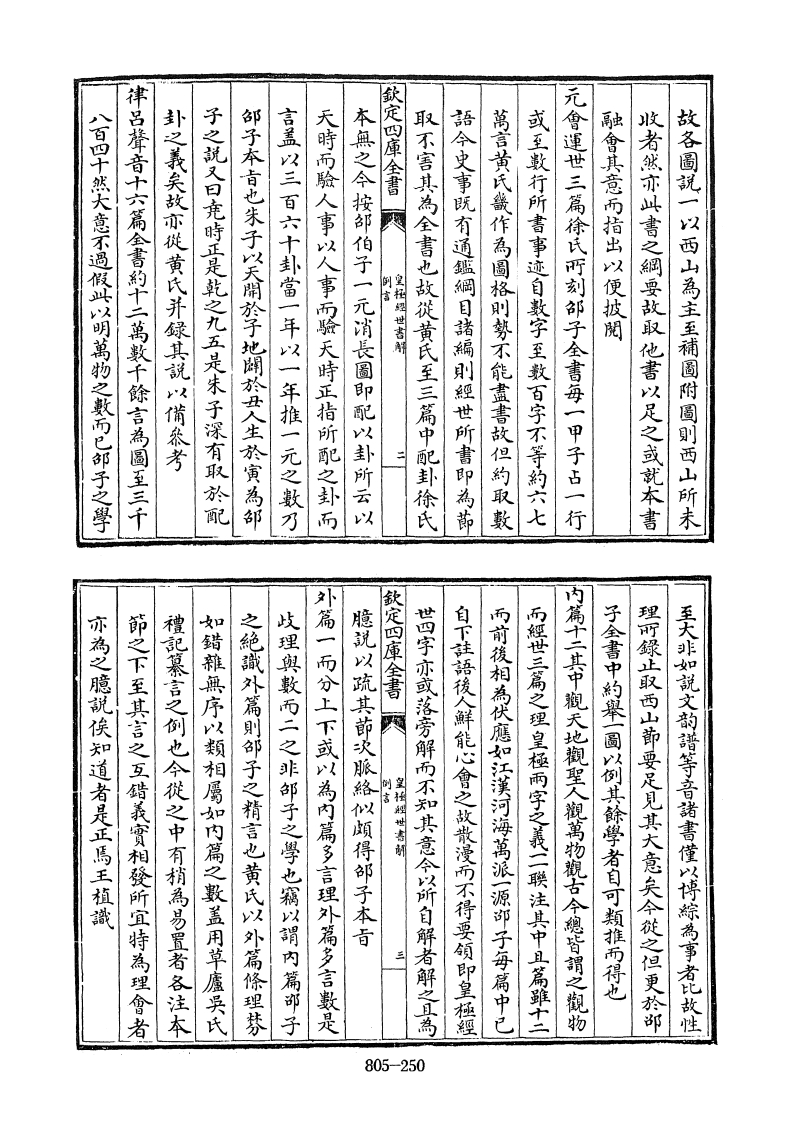 故各圖說一以西山為主至補圖附圖則西山所未
收者然亦此書之綱要故取他書以足之或就本書
融會其意而指出以便披閱
元會運世三篇徐氏所刻邵子全書每一甲子占一行
或至數行所書事迹自數字至數百字不等約六七
萬言黄氏畿作為圖格則勢不能盡書故但約取數
語今史事既有通鑑綱目諸編則經世所書即為節
取不害其為全書也故從黄氏至三篇中配卦徐氏
欽定四庫全書
皇極經世書解
例言
二
本無之今按邵伯子一元消長圖即配以卦所云以
天時而驗人事以人事而驗天時正指所配之卦而
言盖以三百六十卦當一年以一年推一元之數乃
邵子本旨也朱子以天開於子地闢於丑人生於寅為邵
子之說又曰堯時正是乾之九五是朱子深有取於配
卦之義矣故亦從黄氏并錄其說以備叅考
律呂聲音十六篇全書約十二萬數千餘言為圖至三千
八百四十然大意不過假此以明萬物之數而已邵子之學
至大非如說文韵譜等音諸書僅以博綜為事者比故性
理所錄止取西山節要足見其大意矣今從之但更於邵
子全書中約舉一圖以例其餘學者自可類推而得也
内篇十二其中觀天地觀聖人觀萬物觀古今總皆謂之觀物
而經世三篇之理皇極兩字之義一一聯注其中且篇雖十二
而前後相為伏應如江漢河海萬派一源邵子每篇中已
自下註語後人鮮能心會之故散漫而不得要領即皇極經
世四字亦或落旁解而不知其意今以所自解者解之且為
欽定四庫全書
皇極經世書解
例言
三
臆說以疏其節次脈絡似頗得邵子本旨
外篇一而分上下或以為内篇多言理外篇多言數是
歧理與數而二之非邵子之學也竊以謂内篇邵子
之絶識外篇則邵子之精言也黄氏以外篇條理棼
如錯雜無序以類相屬如内篇之數盖用草廬吳氏
禮記纂言之例也今從之中有稍為易置者各注本
節之下至其言之互錯義實相發所宜特為理會者
亦為之臆說俟知道者是正焉王植識
805—250